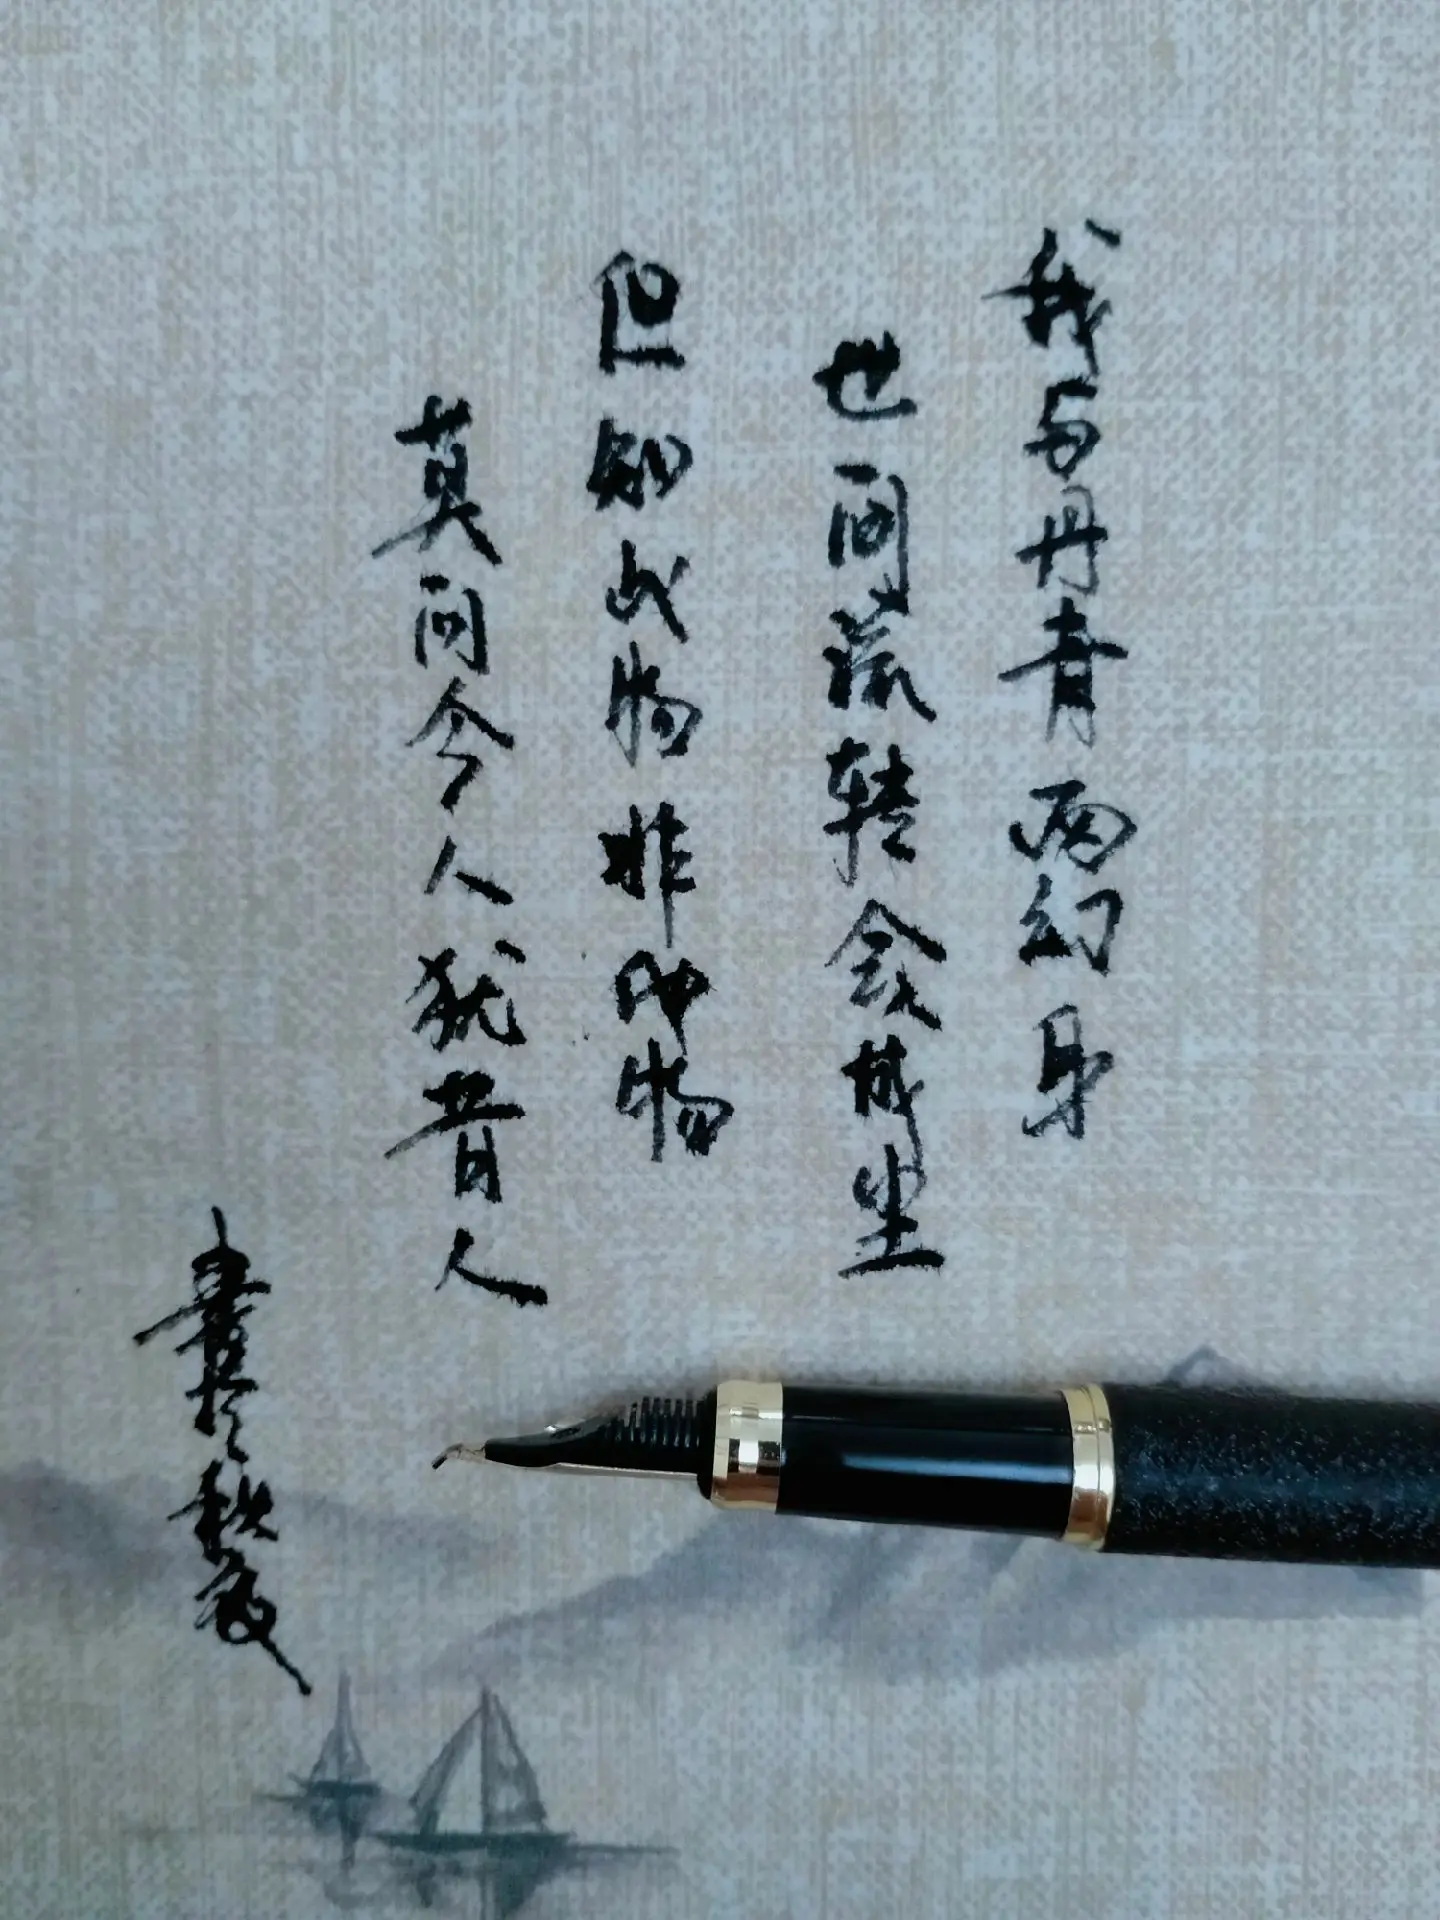 我与丹青两幻身
世间流转会成尘
但知此物非他物
莫问今人犹昔人
書於秋夜